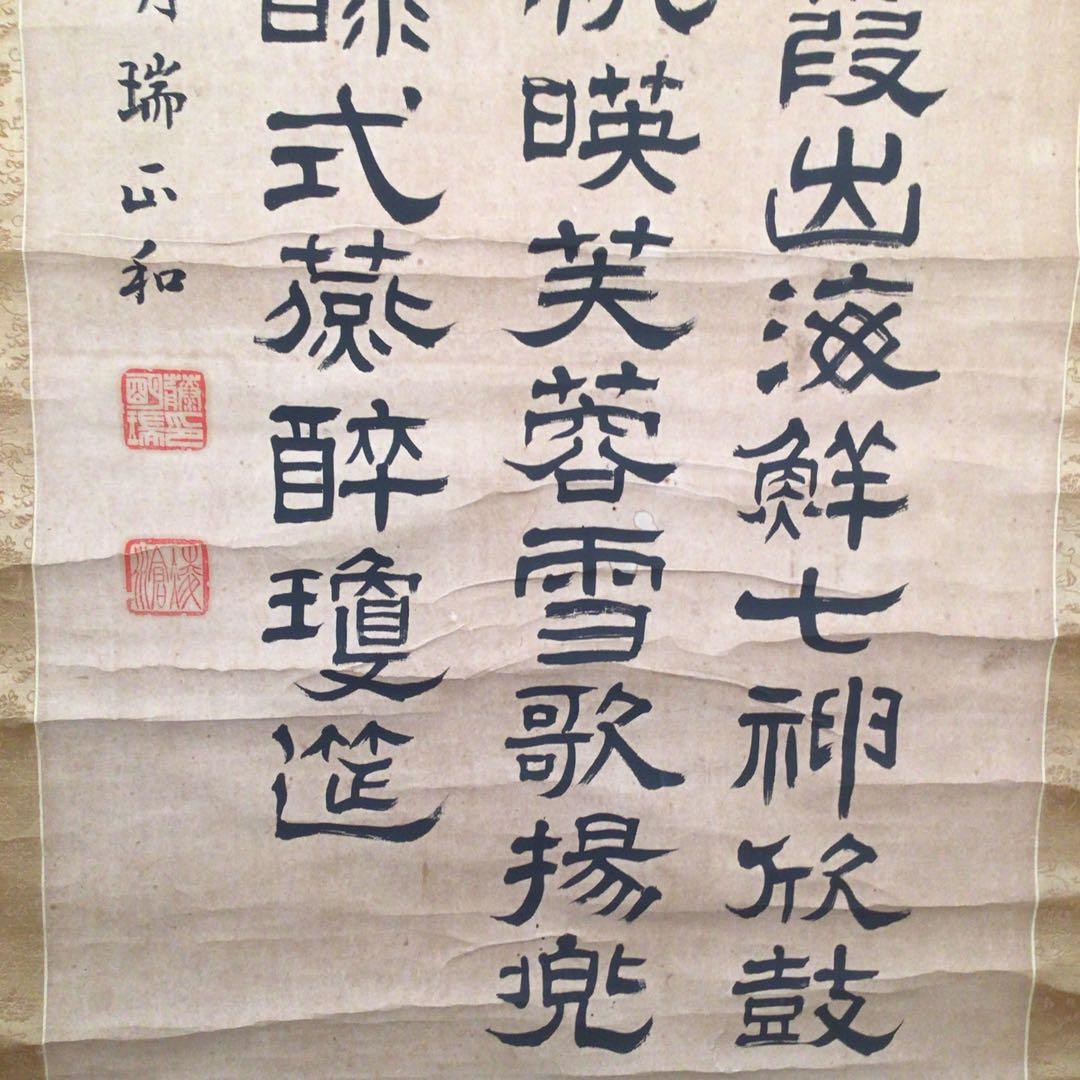 霞出海鮮七神欣鼓
暎芙蓉雪歌揚兜
式燕醉瓊筵
瑞正和